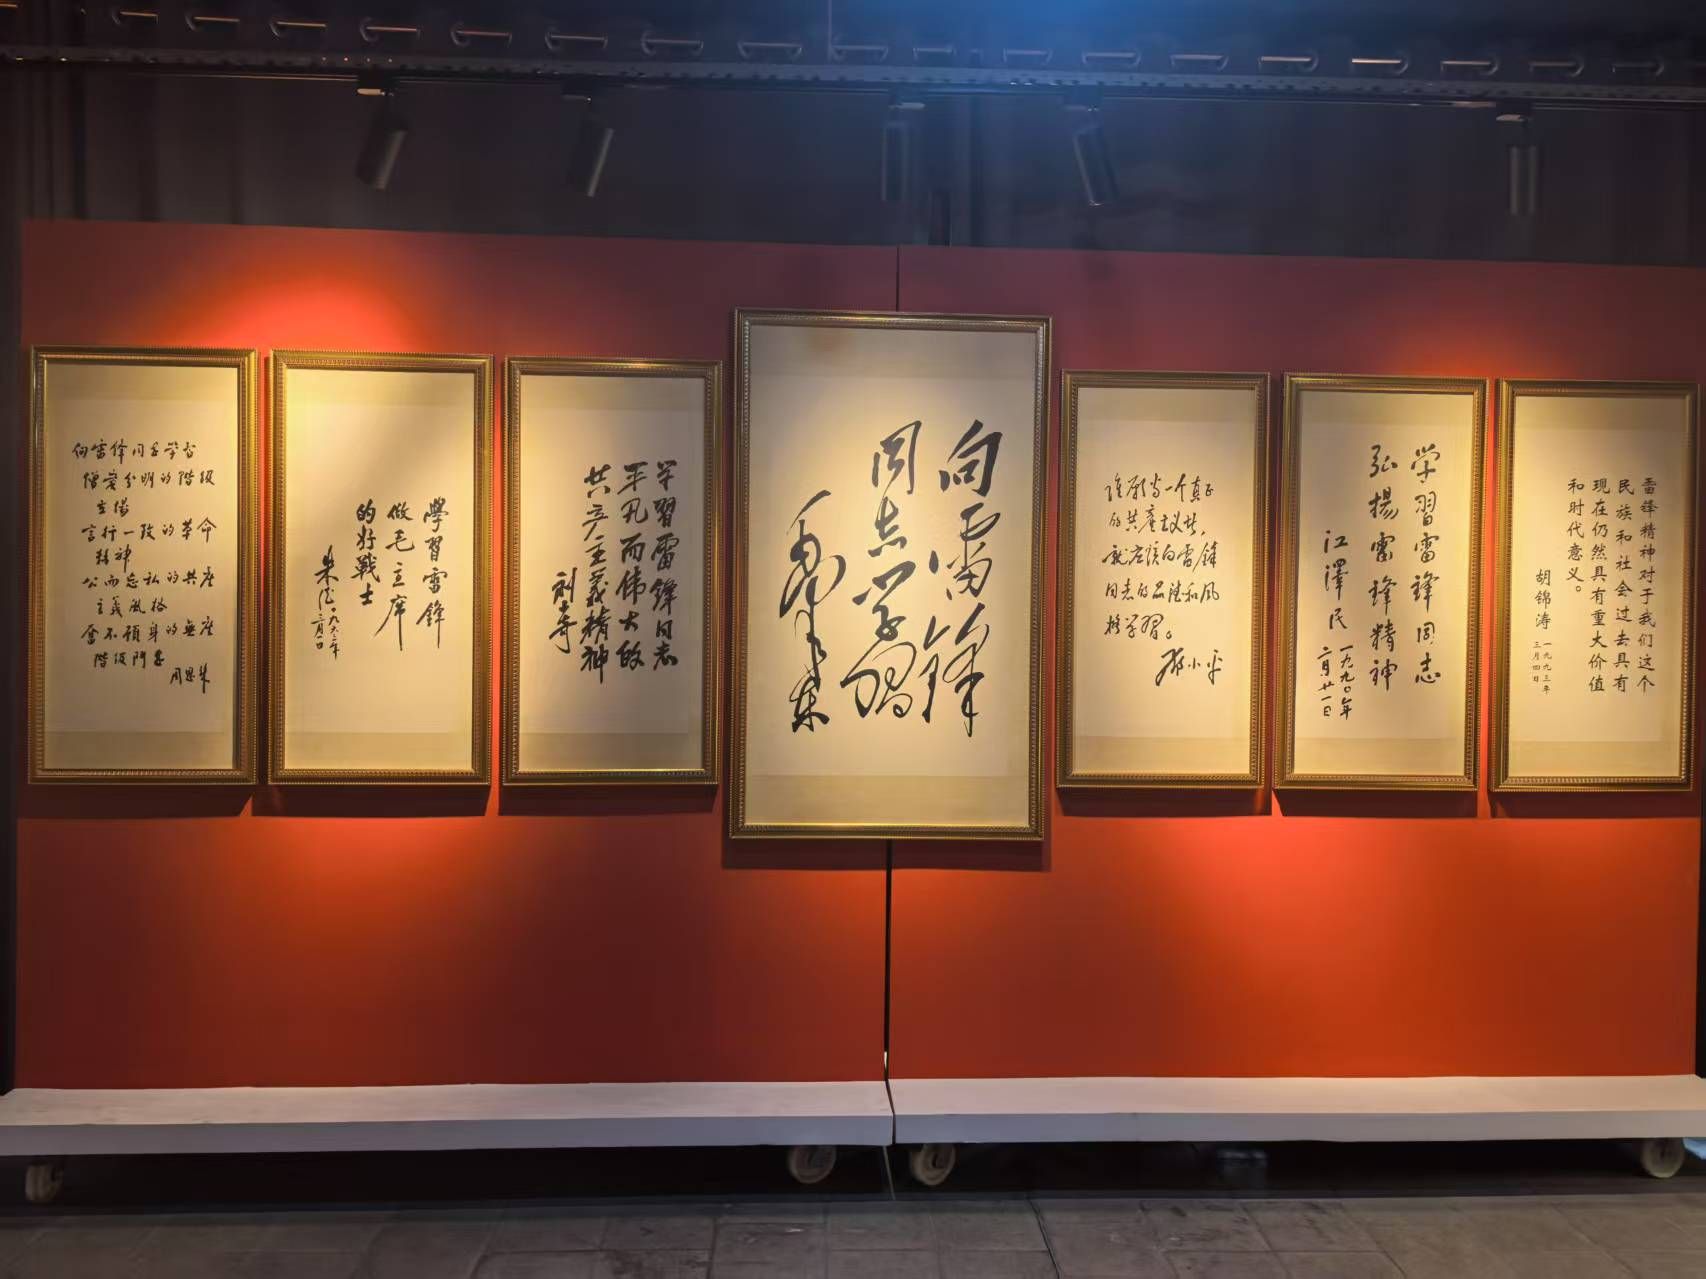 向雷锋同志学习
憎爱分明的阶级
立场
言行一致的革命
精神
公而忘私的共产
主义风格
奋不顾身的无产
阶级斗志
周恩来
學習雷鋒
做毛主席
的好戰士
朱德
一九六三年
二月
学習雷鋒同志
平凡而伟大的
共产主義精神
刘少奇
向雷锋
同志学習
毛泽东
谁愿当一个真正
的共产主义者，
就应该向雷锋
同志的品德和风
格学習。
邓小平
学習雷锋同志
弘揚雷锋精神
江澤民
一九九〇年
二月廿一日
雷锋精神对于我们这个
民族和社会过去具有
现在仍然具有重大价值
和时代意义。
胡锦涛
一九九三年
三月四日